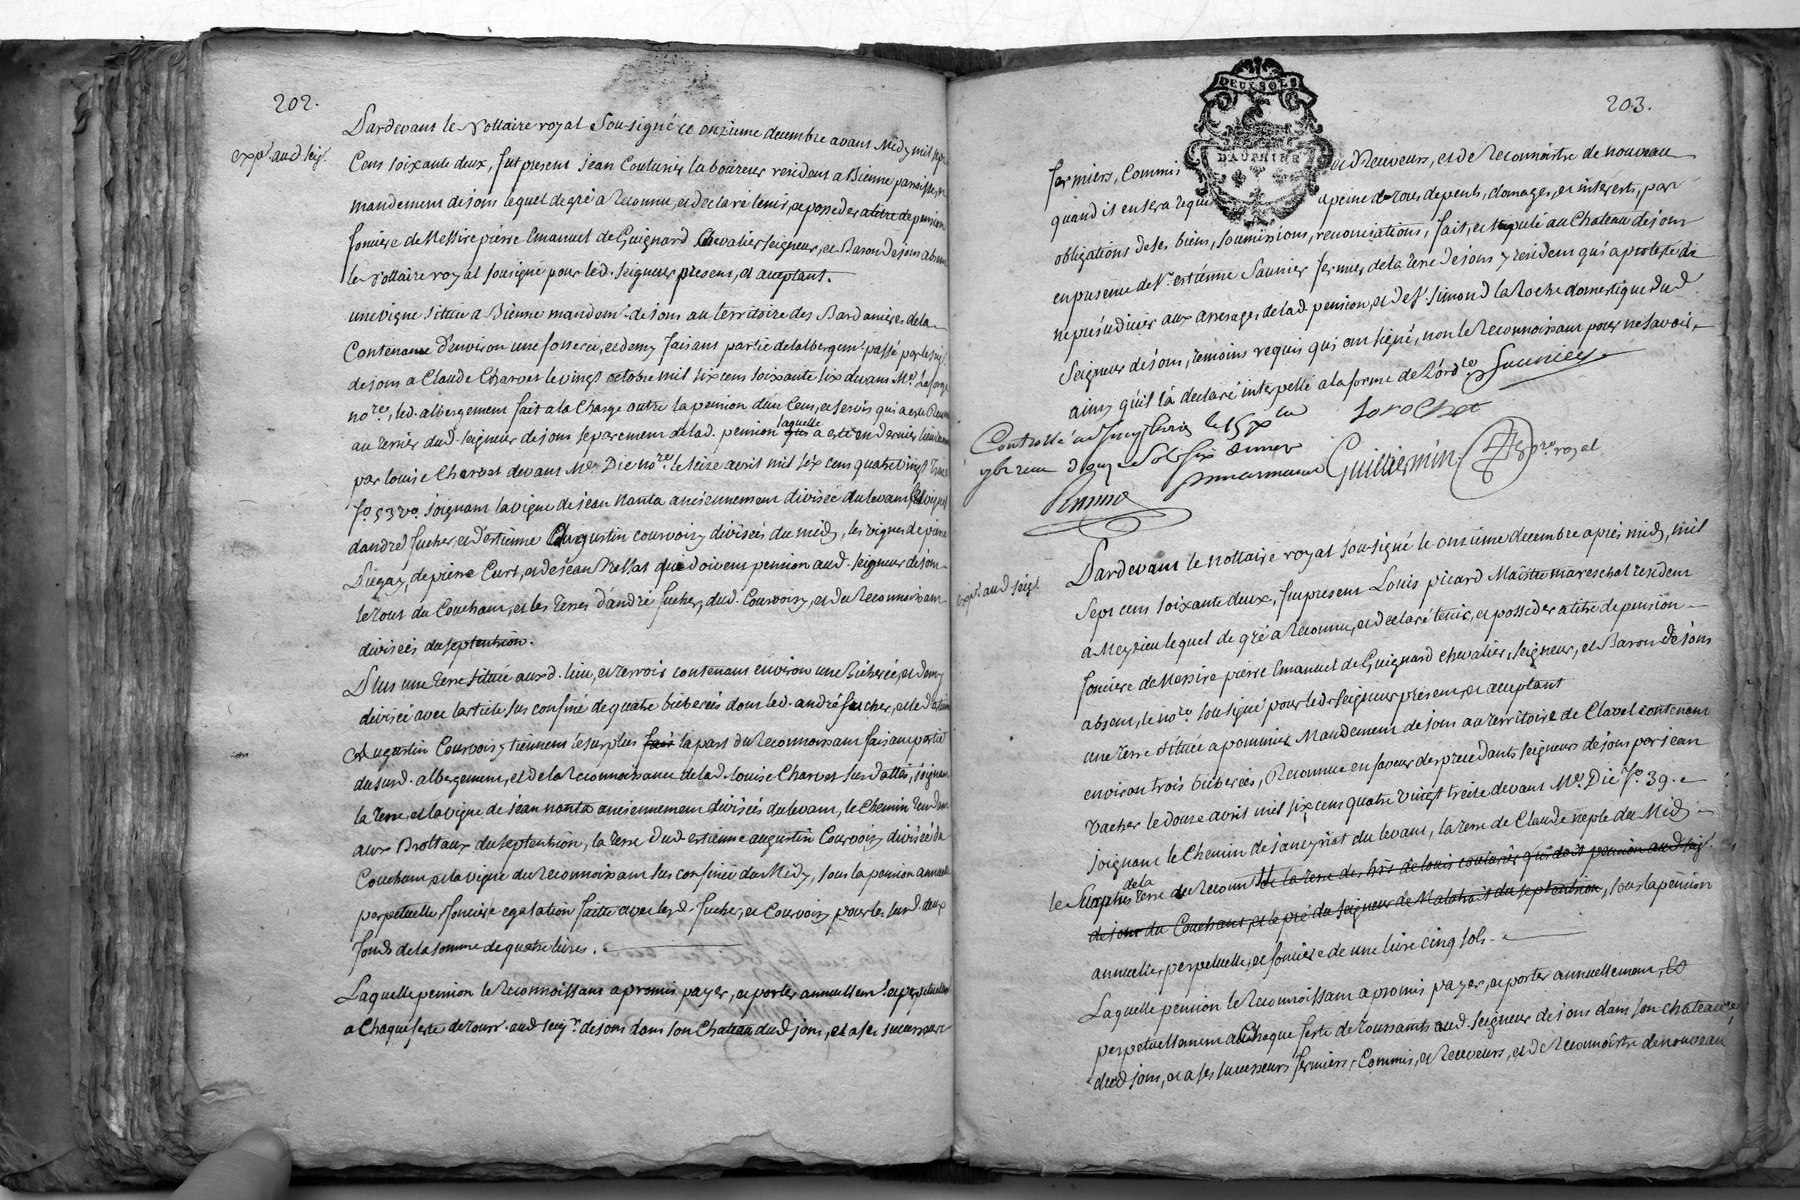 202.
expé aud seig.r
Pardevant le Nottaire royal Sousigné ce onzieme decembre avant Midy mil sept
Cens soixante deux, fut present Jean Couturier laboureur resident a Bienne parroisse, et
mandement de jons lequel de gré a Reconnu, et declaré tenir, et posseder a titre de pension
fonciere de Messire pierre Emanuel de Guignard Chevalier seigneur, et Baron de jons absent
le Nottaire royal sousigné pour led. seigneur present, et acceptant.
une vigne situee a Bienne mandem.t de jons au territoire des Bardanieres de la
Contenance d'environ une fosseree, et demy faisant partie de l'albergem.t passé par le seig.r
de jons a Claude Charvet le vingt octobre mil six cens soixante six devant M.e Laforge
no.re, led. albergement fait a la Charge outre la pension d'un Cens, et servis qui a esté Reconnu
au terrier dud. seigneur de jons separement de lad. pension laquelle a esté en dernier lieu
par Louise Charvet devant M.e Die no.re le seize avril mil six cens quatre vingt treize
f.o 53 v.o joignant la vigne de jean Nanta anciennement divisée du levant,
d'andré fucher, et d'estienne Augustin courvoisy divisées du midy, les vignes de
de pierre Curt, et de jean Rellat qui doivent pension aud. seigneur de jons
le tout du Couchant, et les terres d'andré fucher, dud. Courvoisy, et du Reconnoissant
divisées du septentrion.
Plus une terre située aux d. lieu, et terroir contenant environ une Bicherée, et demy
divisée avec l'article sus confiné de quatre bicherées dont led. andré fucher, et led. estienne
Augustin Courvoisy tiennent le surplus la part du Reconnoissant faisant partie
du sud. albergement, et de la Reconnoissance de lad. Louise Charvet sus dattés, joignant
la terre, et la vigne de jean nanta anciennement divisées du levant, le Chemin tendant
aux Brottaux du septentrion, la terre dud. estienne augustin Courvoisy divisée du
Couchant et la vigne du Reconnoissant sus confinée du Midy, sous la pension annuelle
perpetuelle, fonciere egalation faitte avec lesd. fucher, et Courvoisy pour les susd. deux
fonds de la somme de quatre livres.
Laquelle pension le Reconnoissant a promis payer, et porter annuellem.t et perpetuellem.t
a Chaque feste de touss.ts aud. seig.r de jons dans son Chateau dud. jons, et a ses successeurs
203.
DEUX SOLS
DAUPHINÉ
fermiers, Commis et Receveurs, et de Reconnoistre de nouveau
quand il en sera requis a peine de tous depents, domages, et interests, par
obligations de ses biens, soumissions, renonciations, fait, et stipulé au Chateau de jons
en presence de s.r estienne Saunier fermier de la terre de jons y resident qui a protesté de
ne prejudicier aux arrerages de lad. pension, et de s.r Simond la Roche domestique dud.
Seigneur de jons, temoins requis qui ont signé, non le Reconnoissant pour ne savoir,
ainsy qu'il l'a declaré interpellé a la forme de l'ord.ce Saunier
Laroche
Guilliermin no.re royal
expé aud seig.r
Pardevant le Nottaire royal Sousigné le onzieme decembre aprés midy, mil
Sept cens soixante deux, fut present Louis picard Maître mareschal resident
a Meyzieu lequel de gré a Reconnu, et declaré tenir, et posseder a titre de pension
fonciere de Messire pierre Emanuel de Guignard chevalier, seigneur, et Baron de jons
absent, le no.re sousigné pour led. seigneur present, et acceptant
une terre située a pommier Mandement de jons au territoire de Clavel contenant
environ trois bicherées, Reconnue en faveur des precedants seigneurs de jons par jean
Vacher le douze avril mil six cens quatre vingt treize devant M.e Die f.o 39.
joignant le Chemin de janeyriat du levant, la terre de Claude neple du Midy
le surplus de la terre du Reconn.t et la terre des hrs de louis couturier qui doit pension aud. seig.r
de jons du Couchant, et le pré du seigneur de Malatrait du septentrion, sous la pension
annuelle, perpetuelle, et fonciere de une livre cinq sols.
Laquelle pension le Reconnoissant a promis payer, et porter annuellement, et
perpetuellement a Chaque feste de toussaints aud. seigneur de jons dans son chateau
dud. jons, et a ses successeurs fermiers, Commis, et Receveurs, et de Reconnoistre de nouveau